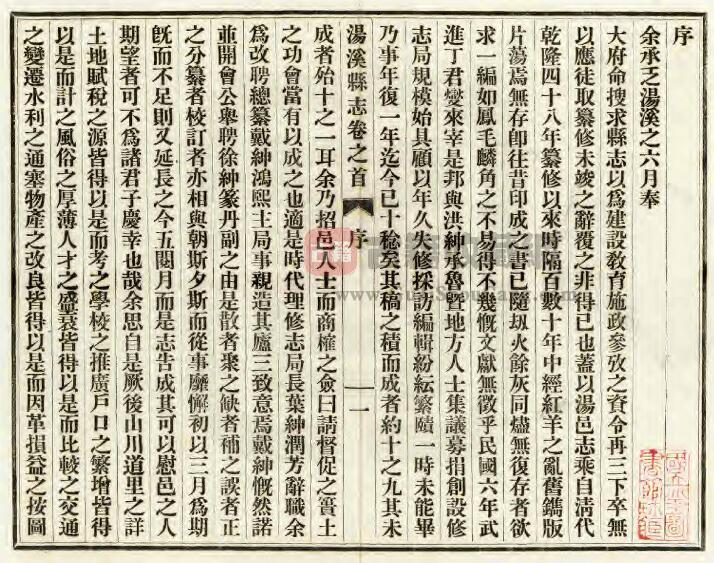 序
余承乏湯溪之六月奉
大府命搜求縣志以爲建設教育施政參攷之資令再三下卒無
以應徒取纂修未竣之辭覆之非得已也蓋以湯邑志乘自清代
乾隆四十八年纂修以來時隔百數十年中經紅羊之亂舊鐫版
片蕩焉無存卽往昔印成之書已隨刼火餘灰同燼無復存者欲
求一編如鳳毛麟角之不易得不幾慨文獻無徵乎民國六年武
進丁君燮來宰是邦與洪紳承魯曁地方人士集議募捐創設修
志局規模始具顧以年久失修採訪編輯紛紜繁賾一時未能畢
乃事年復一年迄今已十稔矣其稿之積而成者約十之九其未
湯溪縣志卷之首
序
一
成者殆十之一耳余乃招邑人士而商榷之僉曰請督促之簣土
之功會當有以成之也適是時代理修志局長葉紳潤芳辭職余
爲改聘總纂戴紳鴻熙主局事親造其廬三致意焉戴紳慨然諾
並開會公舉聘徐紳篆丹副之由是散者聚之缺者補之誤者正
之分纂者校訂者亦相與朝斯夕斯而從事靡懈初以三月爲期
旣而不足則又延長之今五閱月而是志告成其可以慰邑之人
期望者可不爲諸君子慶幸也哉余思自是厥後山川道里之詳
土地賦稅之源皆得以是而考之學校之推廣戶口之繁增皆得
以是而計之風俗之厚薄人才之盛衰皆得以是而比較之交通
之變遷水利之通塞物產之改良皆得以是而因革損益之按圖